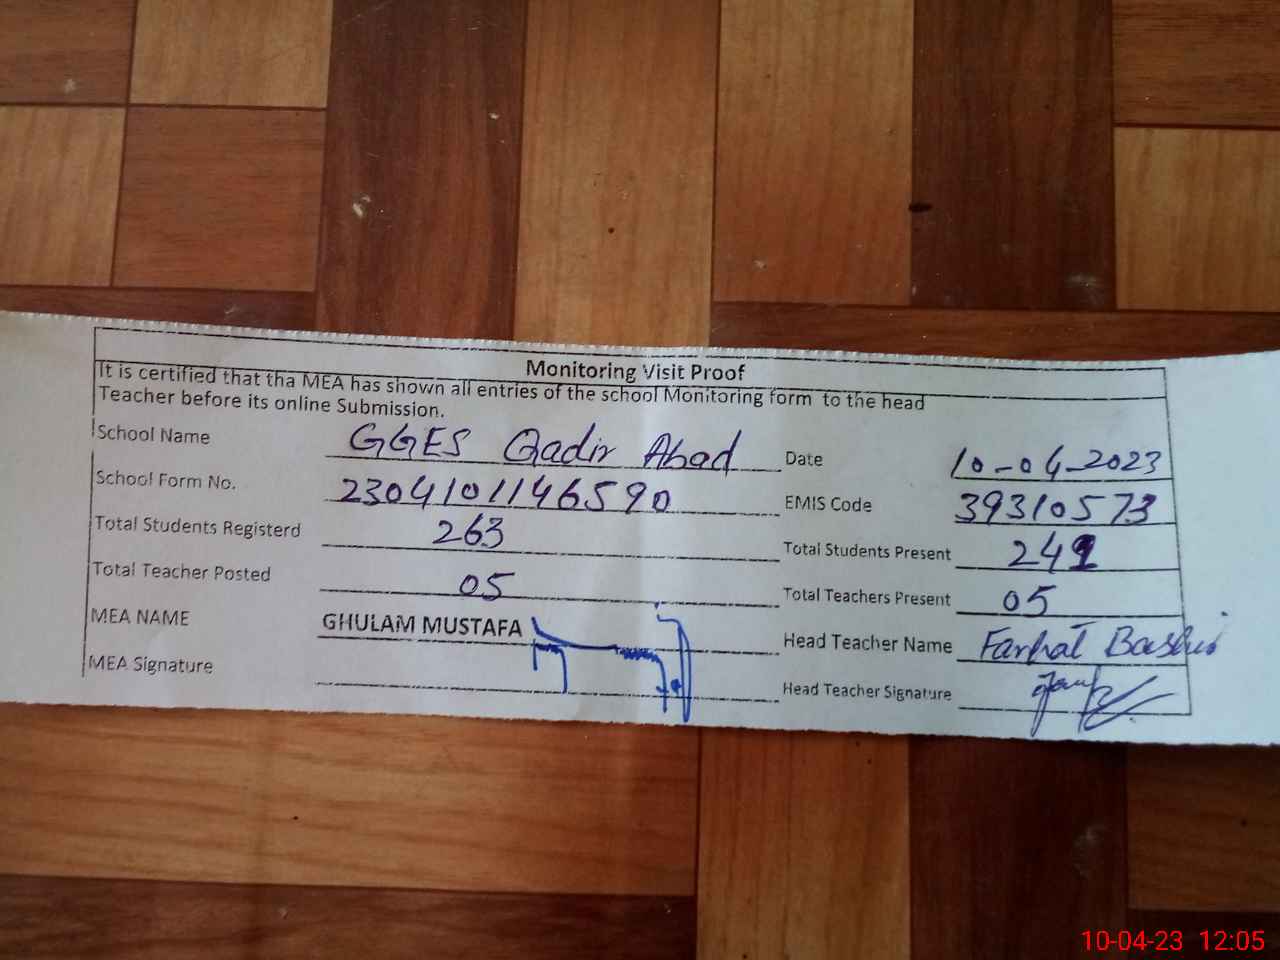 Monitoring Visit Proof
It is certified that tha MEA has shown all entries of the school Monitoring form to the head
Teacher before its online Submission.
School Name GGES Qadir Abad Date 10-04-2023
School Form No. 2304101146590 EMIS Code 39310573
Total Students Registerd 263 Total Students Present 241
Total Teacher Posted 05 Total Teachers Present 05
MEA NAME GHULAM MUSTAFA Head Teacher Name Farhat Bashir
MEA Signature Head Teacher Signature
10-04-23 12:05